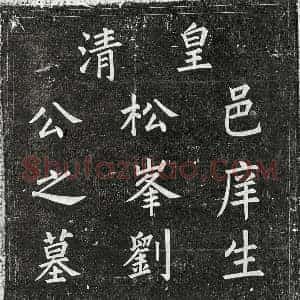 皇清
邑庠生
松峯劉
公之墓
Shufaziliao.COM